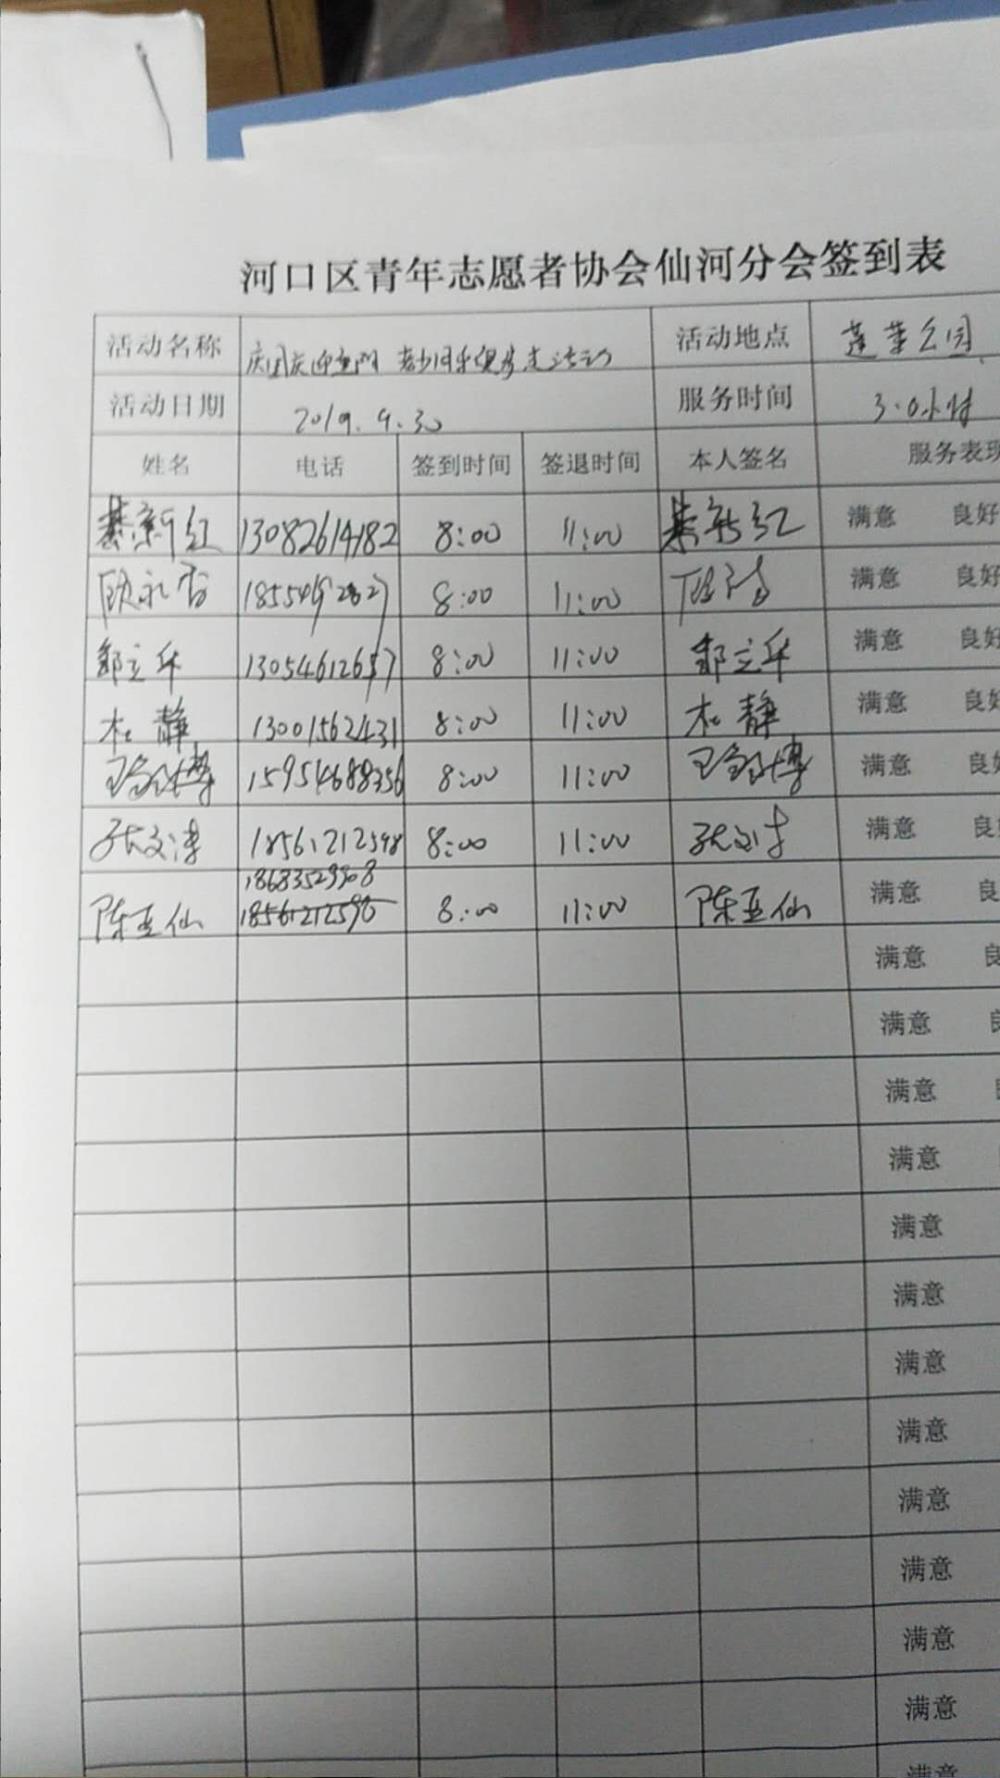 河口区青年志愿者协会仙河分会签到表
活动名称 庆国庆迎重阳 老少同乐健步走活动 活动地点 蓬莱公园
活动日期 2019.9.30 服务时间 3.0小时
姓名 电话 签到时间 签退时间 本人签名 服务表现
綦新红 13082614182 8:00 11:00 綦新红 满意 良好
顾永香 8:00 11:00 满意 良好
邹立华 13054612657 8:00 11:00 邹立华 满意 良好
杜静 13001562431 8:00 11:00 杜静 满意 良好
15954688356 8:00 11:00 满意 良好
张文涛 18561212598 8:00 11:00 张文涛 满意 良
18683529908
陈亚仙 18561212598 8:00 11:00 陈亚仙 满意 良
满意 良
满意 良
满意
满意
满意
满意
满意
满意
满意
满意
满意
满意
满意